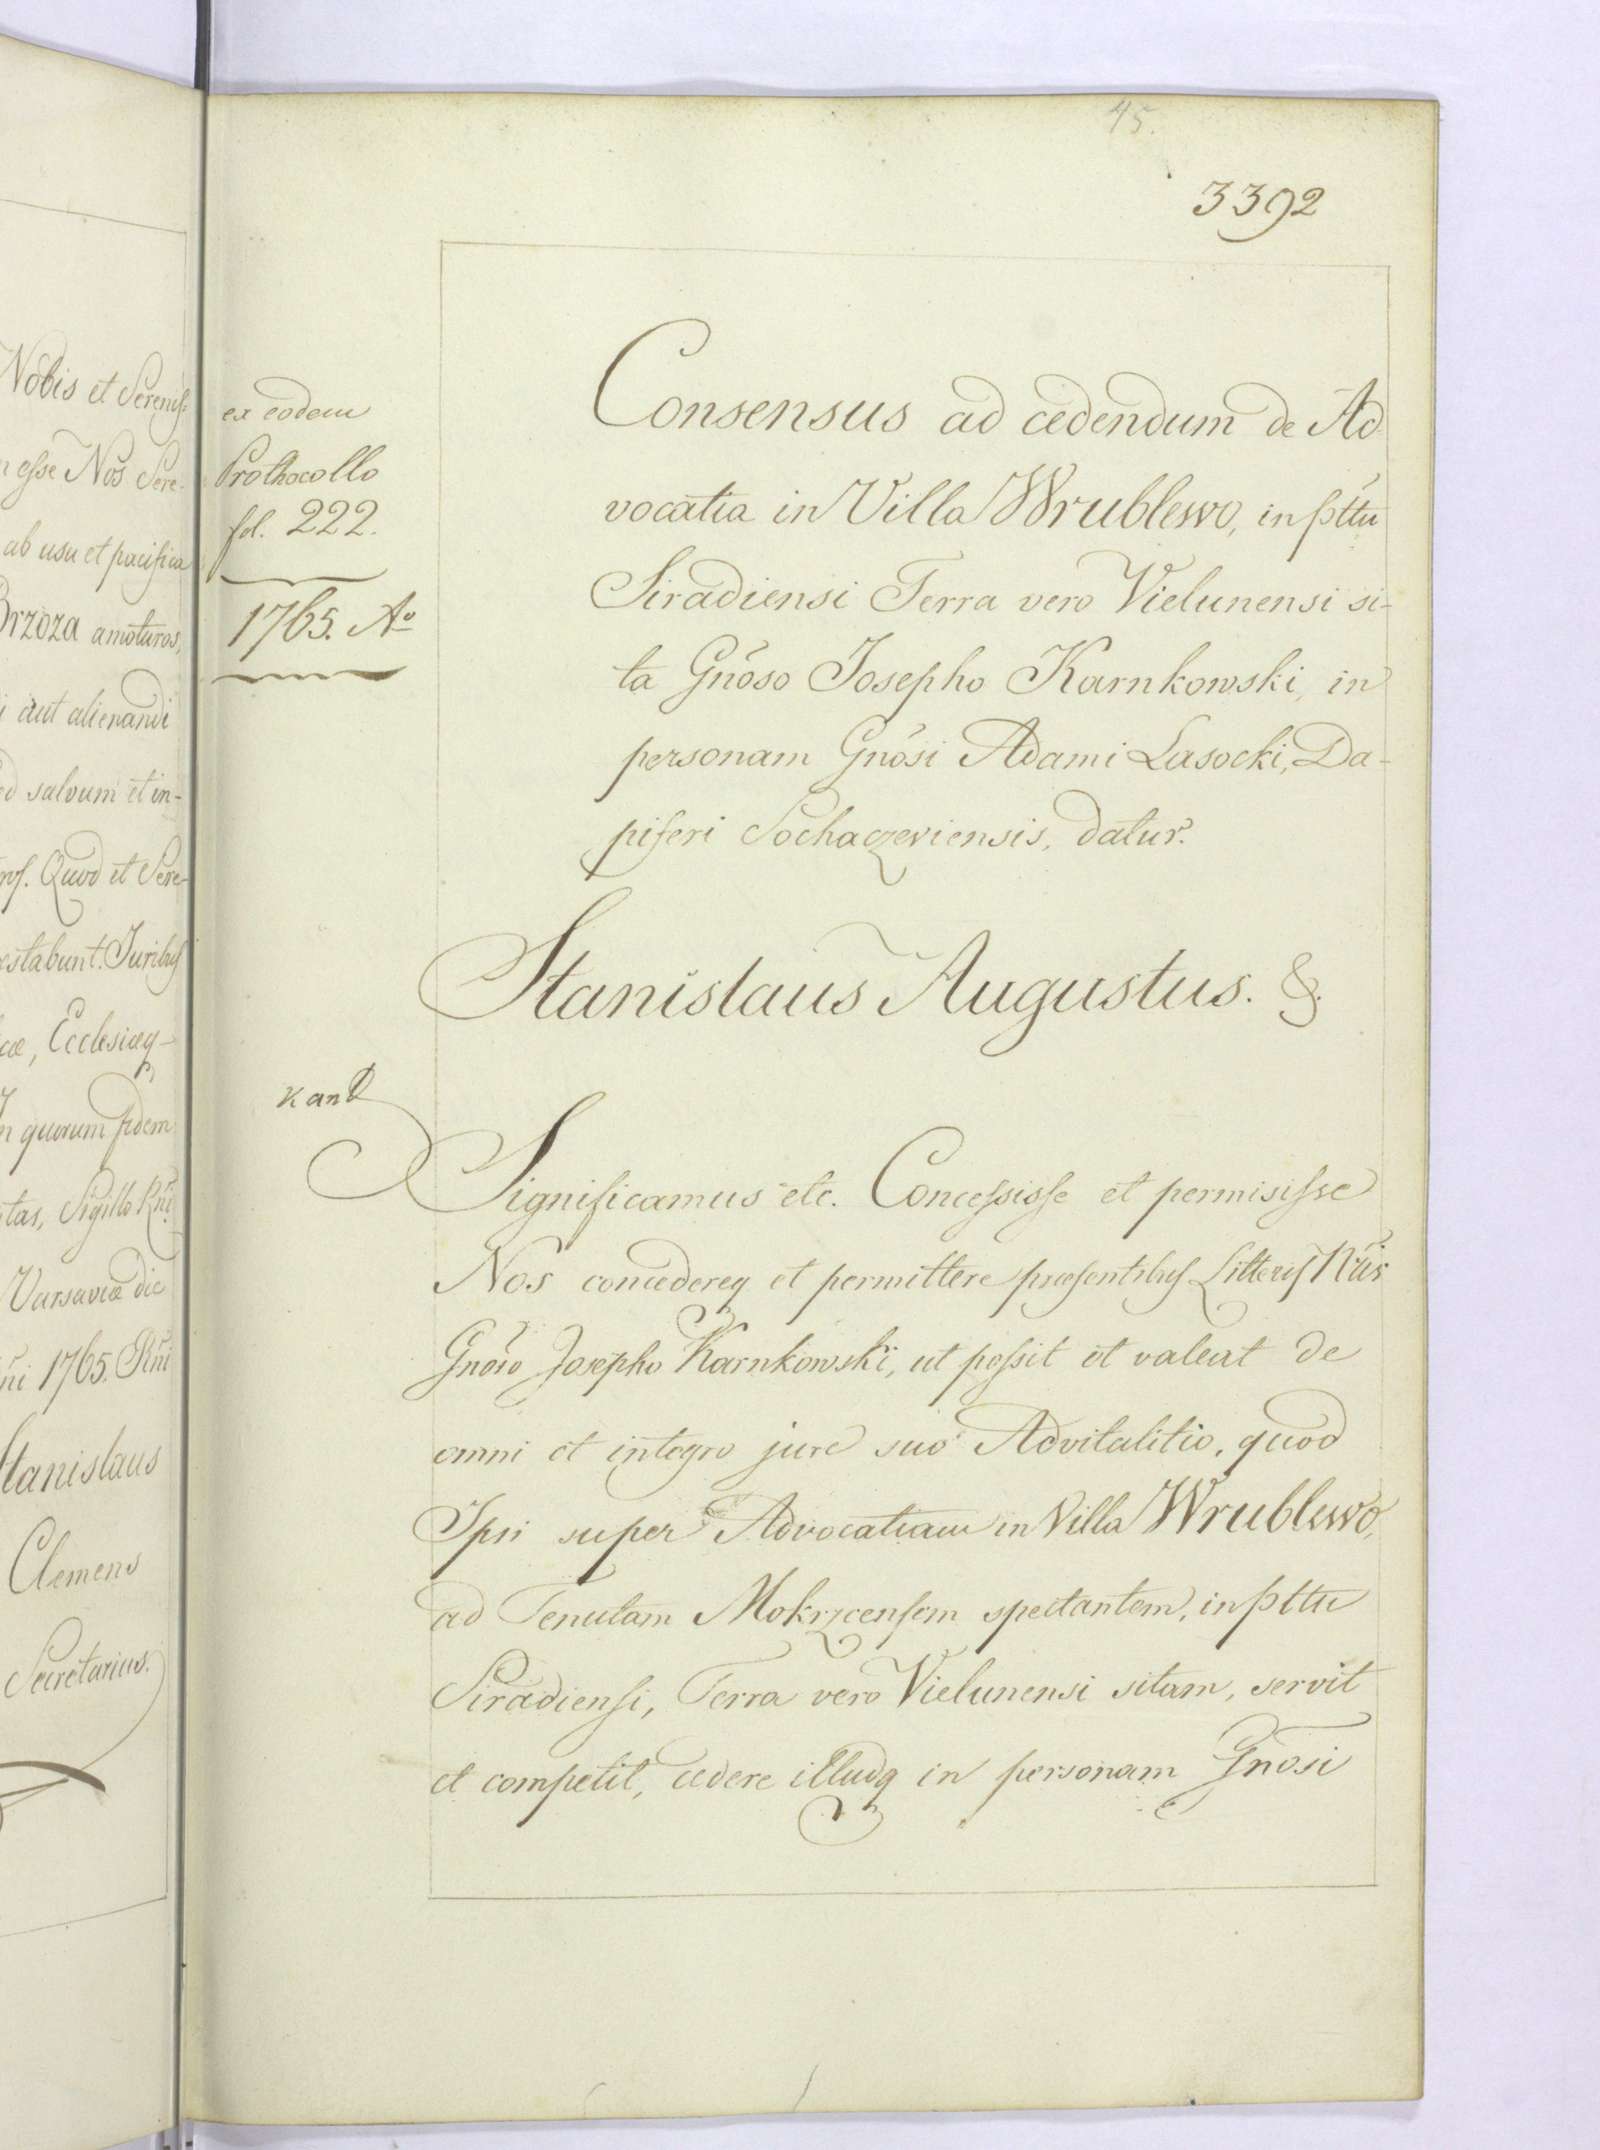 Nobis et Sereniss:
esse Nos Sere-
ab usu et pacifica
Brzoza amoturos,
aut alienandi
salvum et in-
Quod et Sere-
Juribus
Ecclesiæq
quorum fidem
Sigillo Rni
Varsaviæ die
1765. Rni
Stanislaus
Clemens
Secretarius.
45.
3392
ex eodem
Prothocollo
fol. 222.
1765. Ao
Consensus ad cedendum de Ad-
vocatia in Villa Wrublewo, in Pttu
Siradiensi Terra vero Vielunensi si-
ta Gnoso Josepho Karnkowski, in
personam Gnosi Adami Lasocki, Da-
piferi Sochaczeviensis, datur.
Stanislaus Augustus. &.
Significamus etc. Concessisse et permisisse
Nos concedereq et permittere præsentibus Litteris Nris
Gnoso Josepho Karnkowski, ut possit et valeat de
omni et integro jure suo Advitalitio, quod
Ipsi super Advocatiam in Villa Wrublewo,
ad Tenutam Mokrzcensem spectantem, in Pttu
Siradiensi, Terra vero Vielunensi sitam, servit
et competit, cedere illudq in personam Gnosi